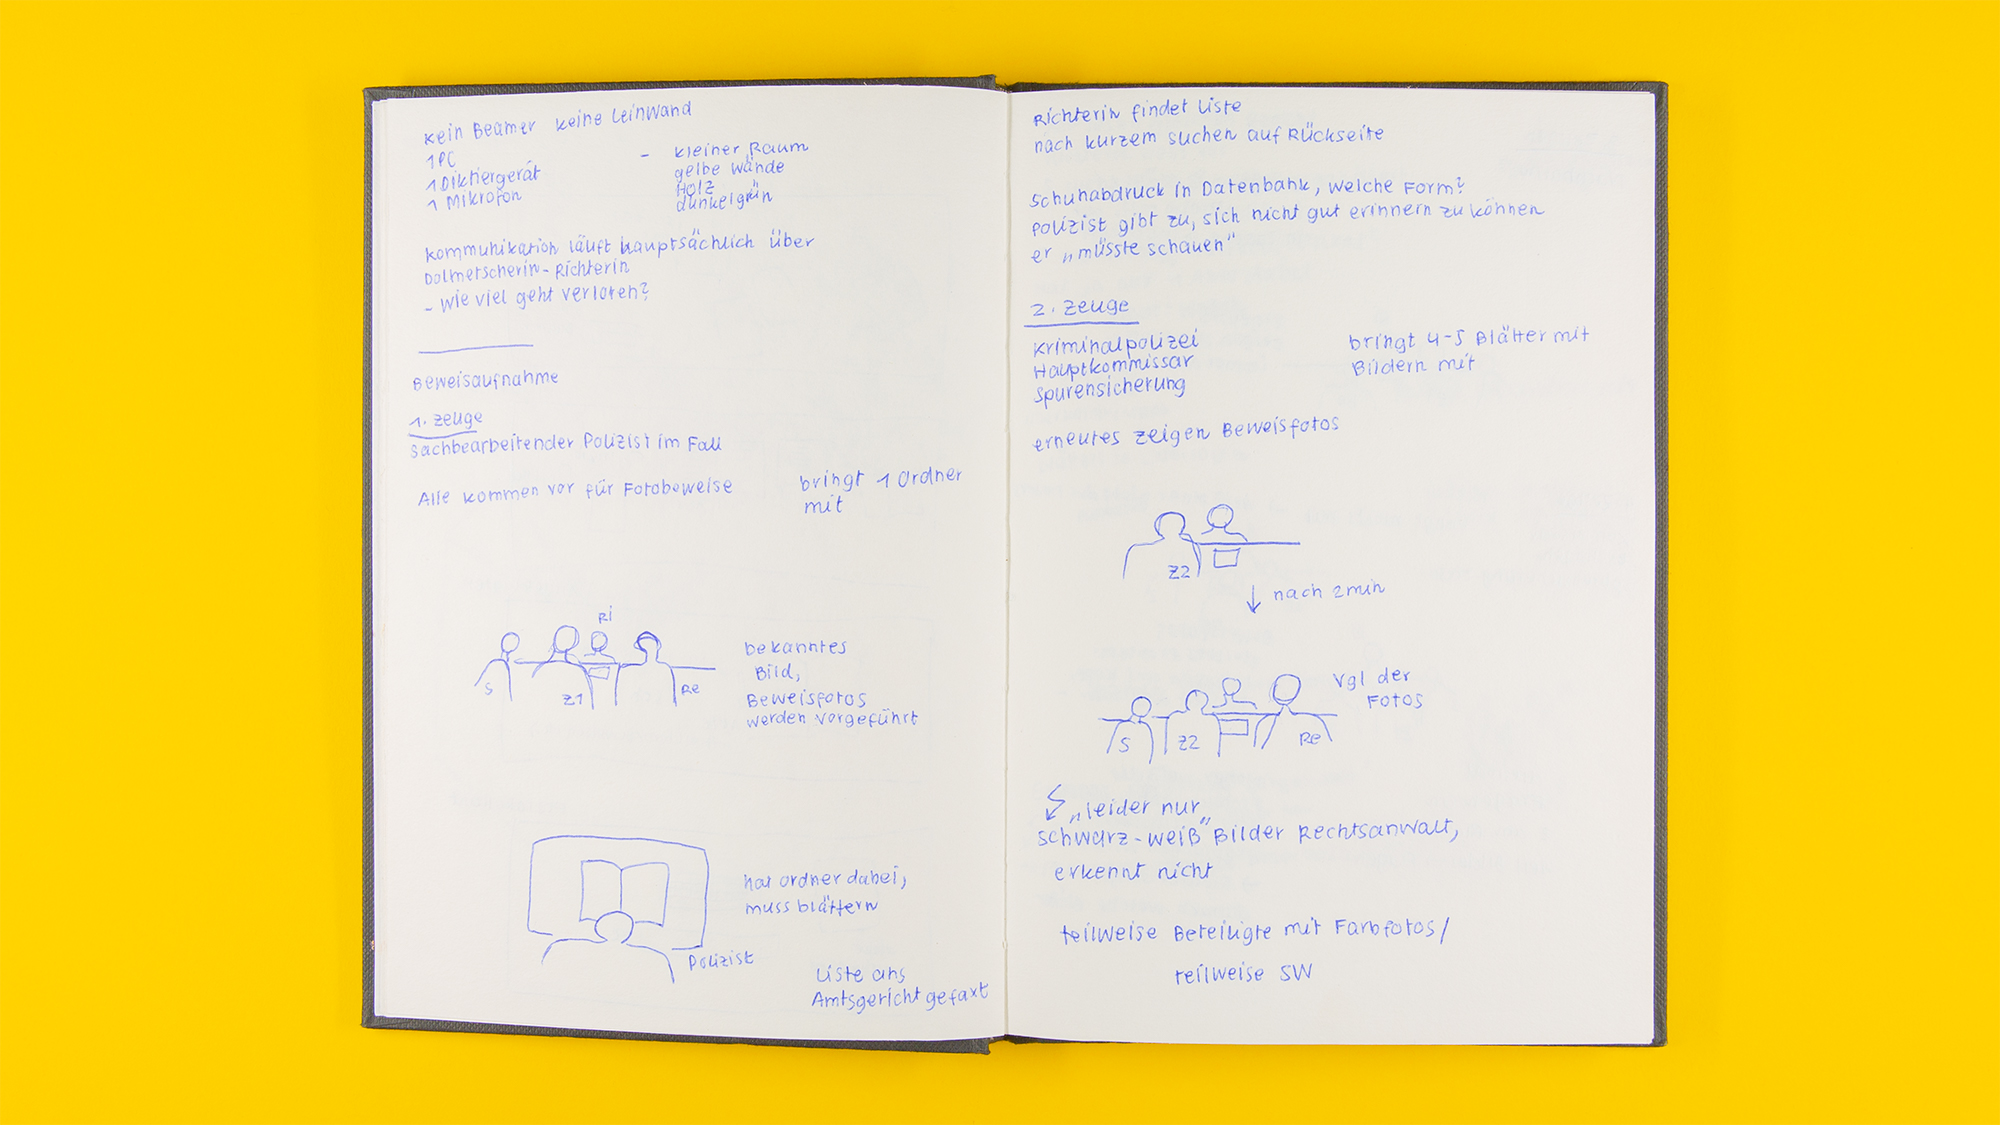 Kein Beamer keine Leinwand
1 PC
1 Diktiergerät
1 Mikrofon
- kleiner Raum
gelbe Wände
Holz
dunkelgrün
Kommunikation läuft hauptsächlich über
Dolmetscherin - Richterin
- Wie viel geht verloren?
Beweisaufnahme
1. Zeuge
Sachbearbeitender Polizist im Fall
Alle kommen vor für Fotobeweise
bringt 1 Ordner
mit
Ri
S
Z1
Re
bekanntes
Bild,
Beweisfotos
werden vorgeführt
hat Ordner dabei,
muss blättern
Polizist
Liste ans
Amtsgericht gefaxt
Richterin findet Liste
nach kurzem suchen auf Rückseite
Schuhabdruck in Datenbank, welche Form?
Polizist gibt zu, sich nicht gut erinnern zu können
er „müsste schauen"
2. Zeuge
Kriminalpolizei
Hauptkommissar
Spurensicherung
bringt 4-5 Blätter mit
Bildern mit
erneutes zeigen Beweisfotos
Z2
↓ nach 2min
Vgl der
Fotos
S
Z2
Re
„leider nur
schwarz-weiß" Bilder Rechtsanwalt,
erkennt nicht
teilweise Beteiligte mit Farbfotos/
teilweise SW